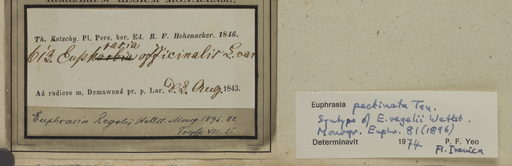 HERBARIUM REGIUM MONACENSE.
Th. Kotschy. Pl. Pers. bor. Ed. R. F. Hohenacker. 1846.
rasia
613. Euphorbia officinalis L. var
Ad radices m. Demawend pr. p. Lar. D. 2. Aug. 1843.
Euphrasia Regelii Wettst. Monogr. 1896. 82
VIII. 25
Euphrasia pectinata Ten.
Syntype of E. regelii Wettst.
Monogr. Euphr. 81 (1896)
Determinavit 1974 P. F. Yeo
Fl. Iranica